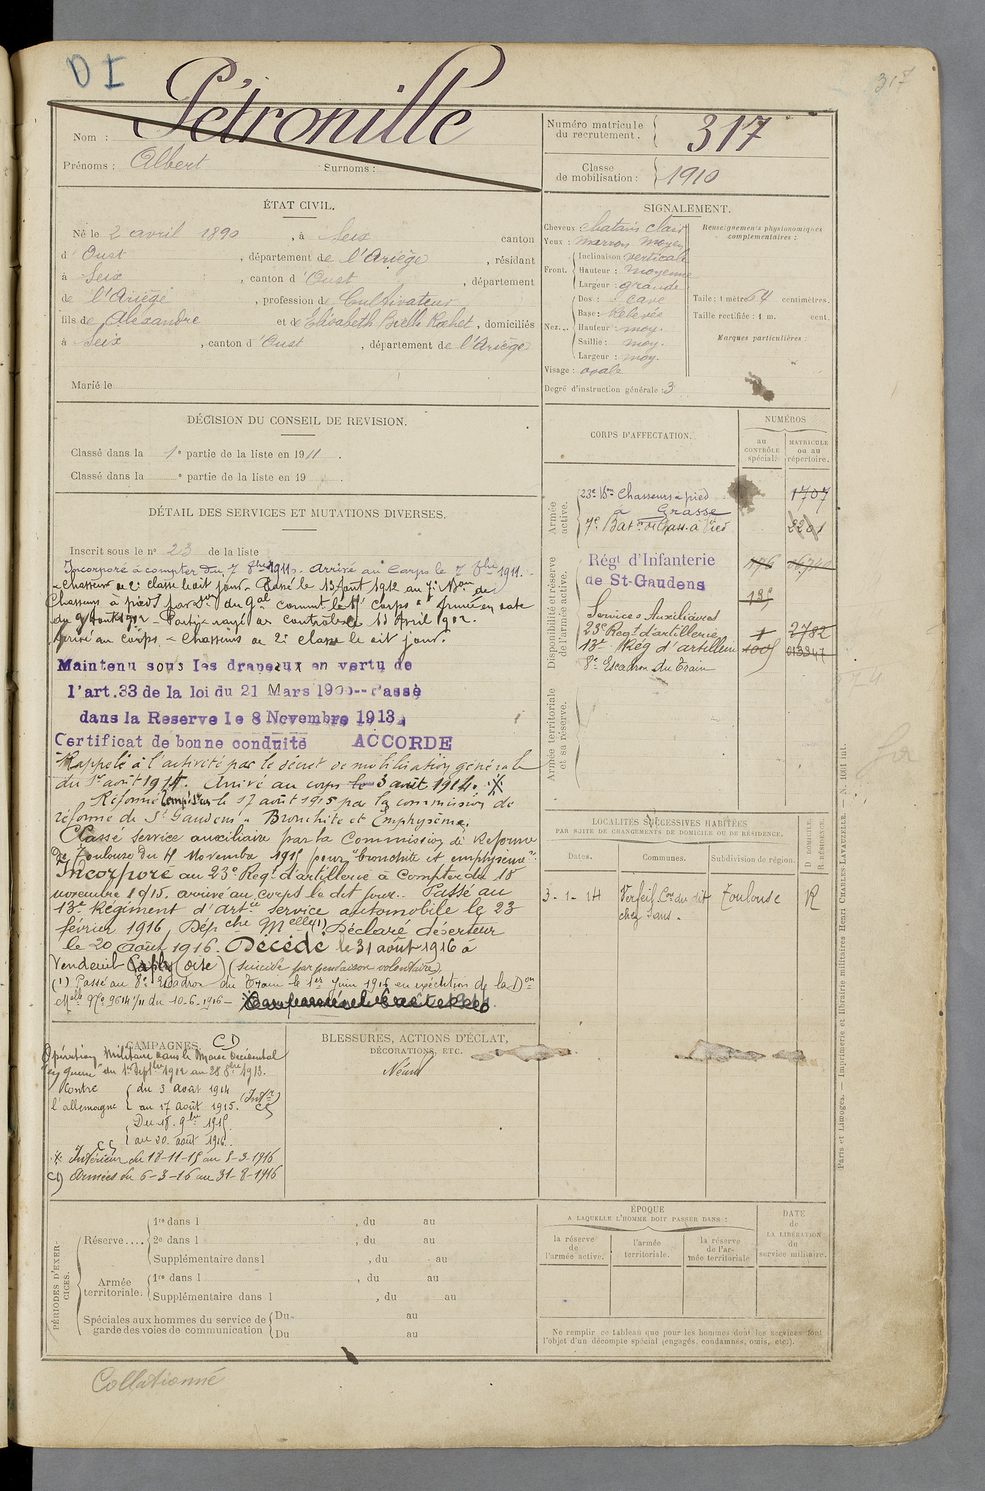 D I
317
Pétronille
Nom :
Prénoms : Albert Surnoms :
Numéro matricule du recrutement. 317
Classe de mobilisation : 1910
ÉTAT CIVIL.
Né le 2 avril 1890, à Seix canton
d'Oust, département de l'Ariège, résidant
à Seix, canton d'Oust, département
de l'Ariège, profession de Cultivateur
fils de Alexandre et de Elisabeth, domiciliés
à Seix, canton d'Oust, département de l'Ariège
Marié le
SIGNALEMENT.
Cheveux : chatain clair
Yeux : marron moyen
Front. Inclinaison verticale
Hauteur : moyenne
Largeur : grande
Nez... Dos : cave
Base : Relevée
Hauteur : moy.
Saillie : moy.
Largeur : moy.
Visage : ovale
Renseignements physionomiques complémentaires :
Taille : 1 mètre 64 centimètres.
Taille rectifiée : 1 m. cent.
Marques particulières :
Degré d'instruction générale : 3
DÉCISION DU CONSEIL DE REVISION.
Classé dans la 1e partie de la liste en 1911.
Classé dans la e partie de la liste en 19 .
DÉTAIL DES SERVICES ET MUTATIONS DIVERSES.
Inscrit sous le no 23 de la liste
Incorporé à compter du 7 8bre 1911. Arrivé au Corps le 7 8bre 1911.
Chasseur de 2e classe le dit jour. Passé le 13 Août 1912 au 7e Bon de
Chasseurs à pieds par du Gal commt le Corps d'Armée en date
du 9 Août 1912
Arrivé au corps Chasseurs de 2e classe le dit jour.
Maintenu sous les drapeaux en vertu de
l'art.33 de la loi du 21 Mars 1905--Passé
dans la Reserve le 8 Novembre 1913
Certificat de bonne conduite ACCORDE
Rappelé à l'activité par le décret de mobilisation générale
du 1er août 1914. Arrivé au corps le 3 août 1914.
Réformé tempre le 17 août 1915 par la commission de
réforme de St Gaudens. Bronchite et Emphysème.
Classé service auxiliaire par la Commission de Réforme
de Toulouse du Novembre 1915 pour "bronchite et emphysème".
Incorporé au 23e Régt d'artillerie à Compter du 18
novembre 1915, arrivé au corps le dit jour. Passé au
13e Régiment d'artie service automobile le 23
février 1916, Dép che Melle (1) Déclaré déserteur
le 20 Août 1916. Décédé le 31 août 1916 à
Vendeuil Caply (Oise) (suicide par pendaison volontaire).
(1) Passé au 8e Escadron du Train le 1er Juin 1916 en exécution de la Don
Melle No 9614/11 du 10-6-1916
CORPS D'AFFECTATION.
NUMÉROS
au CONTRÔLE spécial.
MATRICULE ou au répertoire.
Armée active.
23e Bon Chasseurs à pied 1707
à Grasse
7e Batn de Chass. à Pied 2201
Disponibilité et réserve de l'armée active.
Régt d'Infanterie
de St-Gaudens
Services Auxiliaires
23e Regt d'artillerie 1 2782
13e Rég d'artillerie 1005 013347
8e Escadron du Train
Armée territoriale et sa réserve.
LOCALITÉS SUCCESSIVES HABITÉES
PAR SUITE DE CHANGEMENTS DE DOMICILE OU DE RÉSIDENCE.
Dates. Communes. Subdivision de région. D. DOMICILE. R. RÉSIDENCE.
3-1-14 Verfeil Toulouse R
CAMPAGNES.
CD
Opération Militaire dans le Maroc Occidental
"en guerre" du 1er Septbre 1912 au 28 8bre 1913.
Contre l'allemagne du 3 août 1914
au 17 août 1915.
Du 18. 9bre 1915.
au 20. août 1916.
Intérieur du 18-11-15 au 5-3-1916
Armées du 6-3-16 au 31-8-1916
BLESSURES, ACTIONS D'ÉCLAT,
DÉCORATIONS, ETC.
Néant
PÉRIODES D'EXERCICES.
Réserve.... 1re dans l , du au
2e dans l , du au
Supplémentaire dans l , du au
Armée territoriale. 1re dans l , du au
Supplémentaire dans l , du au
Spéciales aux hommes du service de garde des voies de communication Du au
Du au
ÉPOQUE
A LAQUELLE L'HOMME DOIT PASSER DANS :
la réserve de l'armée active.
l'armée territoriale.
la réserve de l'armée territoriale
DATE de LA LIBÉRATION du service militaire.
Ne remplir ce tableau que pour les hommes dont les services font
l'objet d'un décompte spécial (engagés, condamnés, omis, etc.).
Paris et Limoges. — Imprimerie et librairie militaires Henri CHARLES-LAVAUZELLE. — N. 1001 int.
Collationné